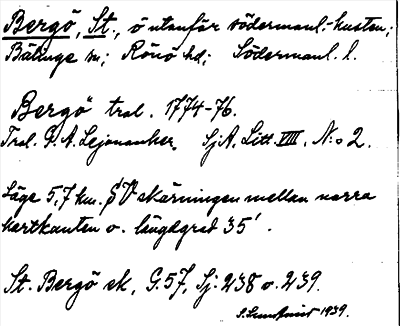 Bergö, St., ö utanför södermanl.-kusten;
Bälinge sn; Rönö hd; Södermanl. l.
Bergö tral. 1774-76.
Tral. G. A. Lejonanker. SjA, Litt. VIII, N:o 2.
Läge 5,7 km. SV skärningen mellan norra
kartkanten o. längdgrad 35'.
St. Bergö ek, G.57, Sj. 238 o. 239.
1939.